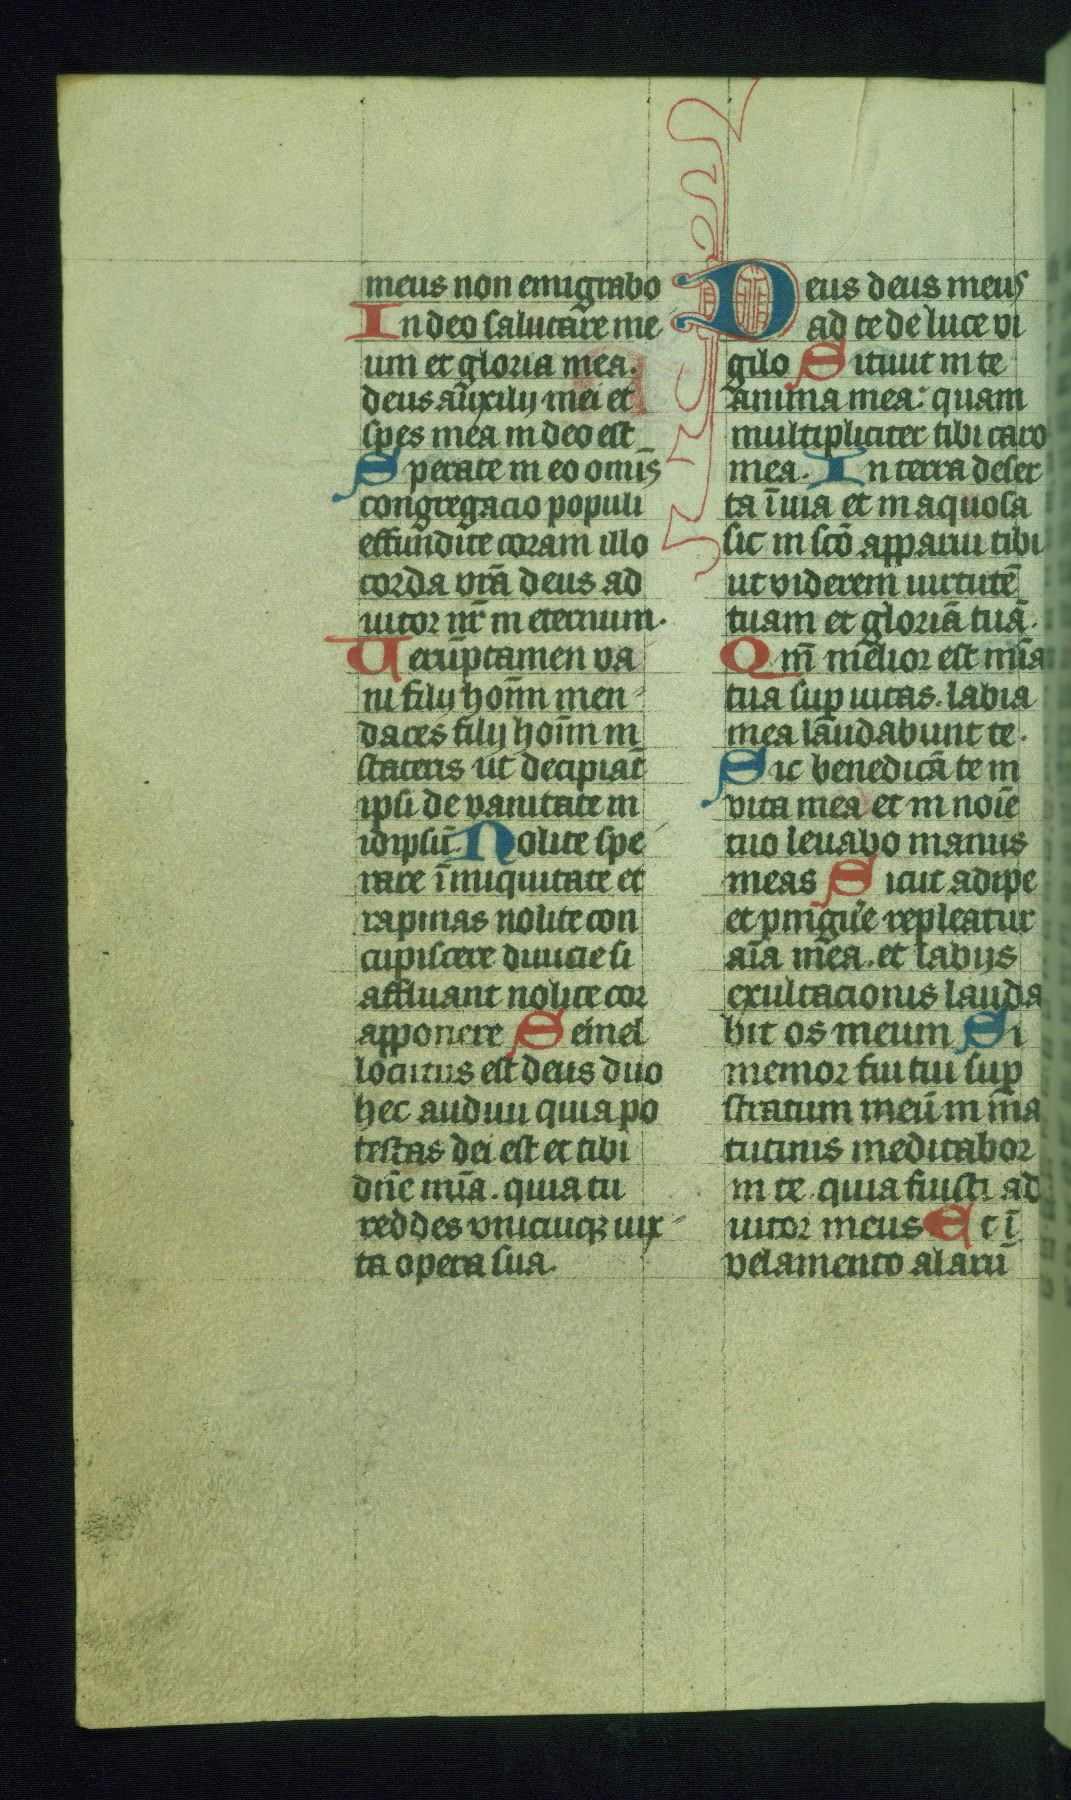 meus non emigrabo
In deo salutare me
um et gloria mea.
deus aũxilij mei et
spes mea in deo est
Sperate in eo omĩs
congregacio populi
effundite coram illo
corda vrã deus ad
iutor nr̃ in eternum.
Verũptamen va
ni filij hoĩm men
daces filij hoĩm in
stateris ut decipiãt
ipsi de vanitate in
idipsũ Nolite spe
rare ĩ iniquitate et
rapinas nolite con
cupiscere diuicie si
affluant nolite cor
apponere Semel
locutus est deus duo
hec audiui quia po
testas dei est et tibi
dñe mĩa. quia tu
reddes vnicuiqꝫ iux
ta opera sua.
Deus deus meus
ad te de luce vi
gilo Sitiuit in te
anima mea: quam
multipliciter tibi caro
mea. In terra deser
ta ĩuia et inaquosa
sic in scõ apparui tibi
ut viderem uirtutẽ
tuam et gloriã tuã.
Qm̃ melior est mĩa
tua suꝑ uitas. labia
mea laudabunt te.
Sic benedicã te in
vita mea et in noĩe
tuo leuabo manus
meas Sicut adipe
et pingũe repleatur
aĩa mea. et labijs
exultacionis lauda
bit os meum Si
memor fui tui suꝑ
stratum meũ in ma
tutinis meditabor
in te. quia fuisti ad
iutor meus Et ĩ
velamento alarũ